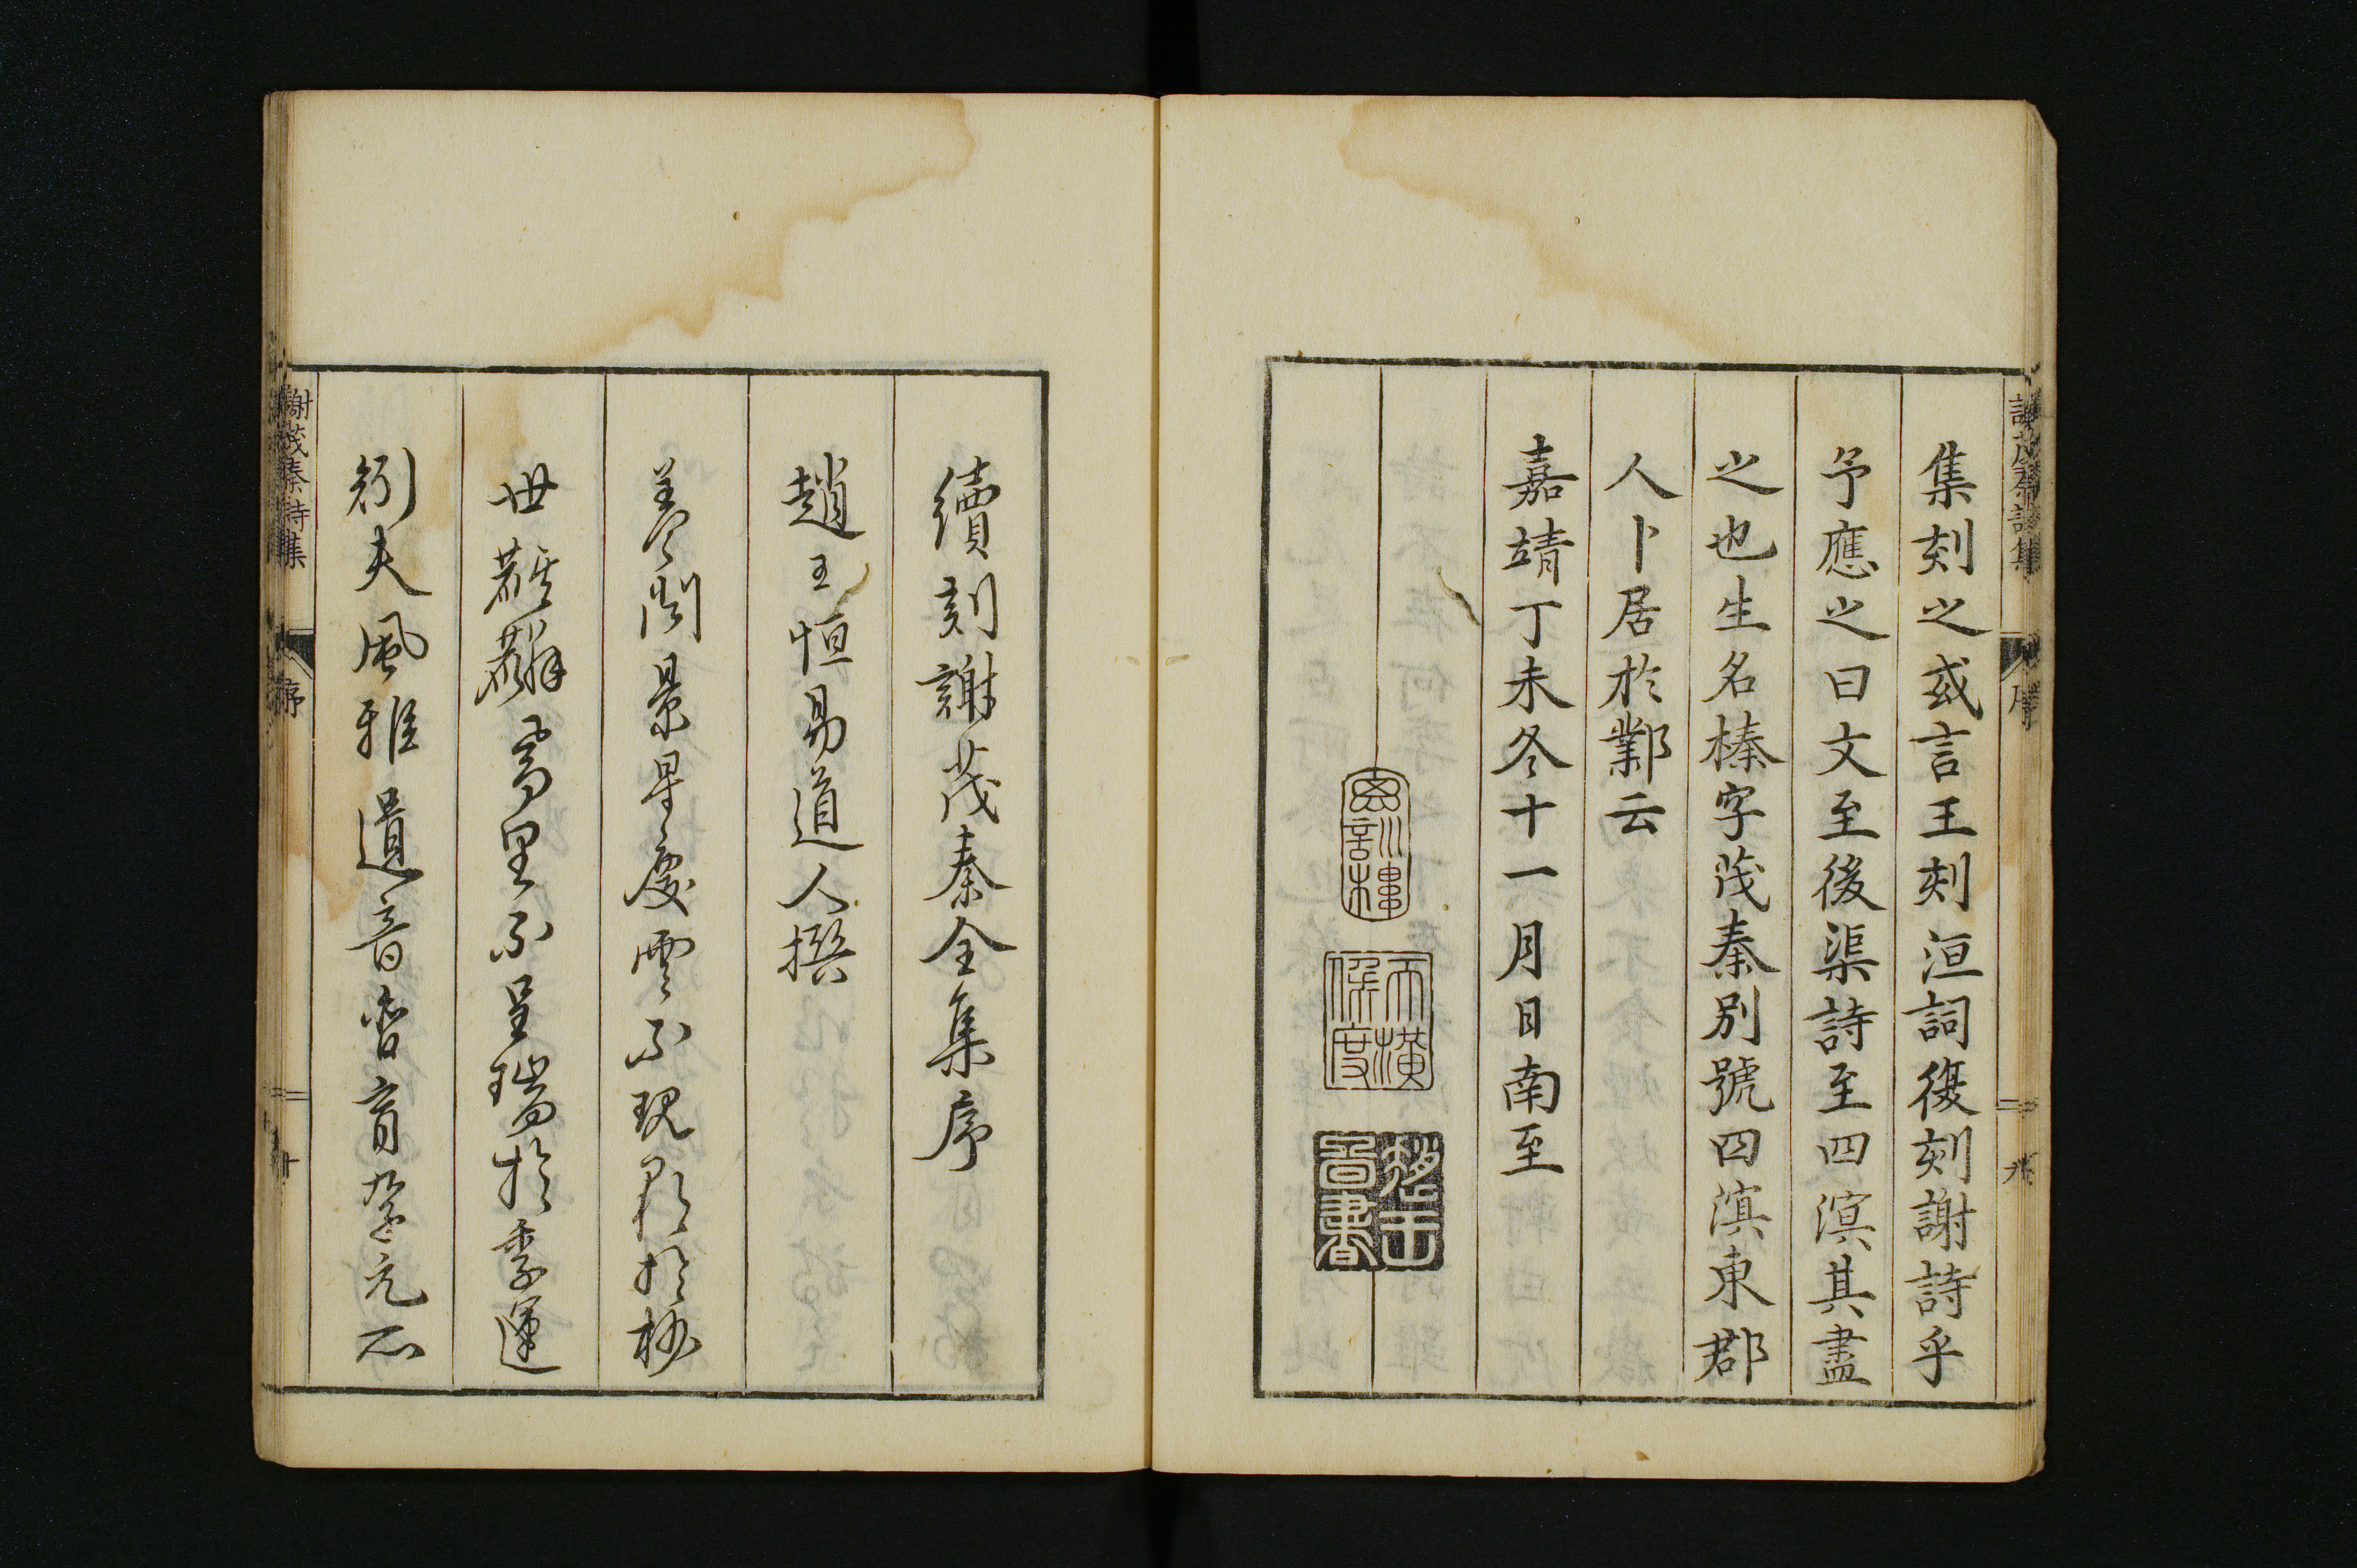 集刻之或言王刻洹詞復刻謝詩乎
予應之曰文至後渠詩至四溟其盡
之也生名榛字茂秦別號四溟東郡
人卜居於鄴云
嘉靖丁未冬十一月日南至
續刻謝茂秦全集序
趙王恒易道人撰
蓋聞景星慶雲不現彩於
世麒麟鸞不呈瑞於季運
矧夫風雅遺音
謝茂秦詩集
序
十
謝茂秦詩集
序
九